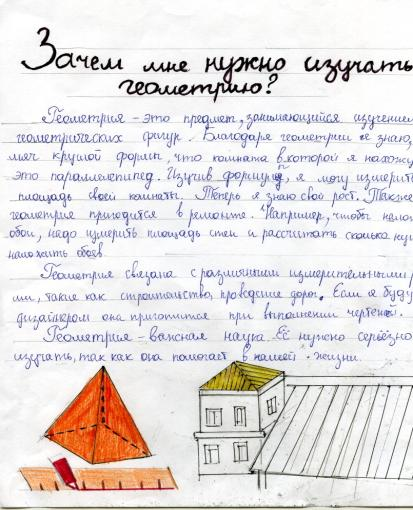 Зачем мне нужно изучать
геометрию?
Геометрия - это предмет, занимающийся изучением
геометрических фигур. Благодаря геометрии я знаю,
мяч круглой формы, что комната в которой я нахожу
это параллелепипед. Изучив формулу, я могу измерить
площадь своей комнаты. Теперь я знаю свой рост. Также
геометрия пригодится в ремонте. Например, чтобы
обои, надо измерить площадь стен и рассчитать сколько
обоев.
Геометрия связана с различными измерительными
ми, такие как строительство, проведение дорог. Если я буду
дизайнером она пригодится при выполнении чертежей.
Геометрия - важная наука. Её нужно серьёзно
изучать, так как она помогает в нашей жизни.